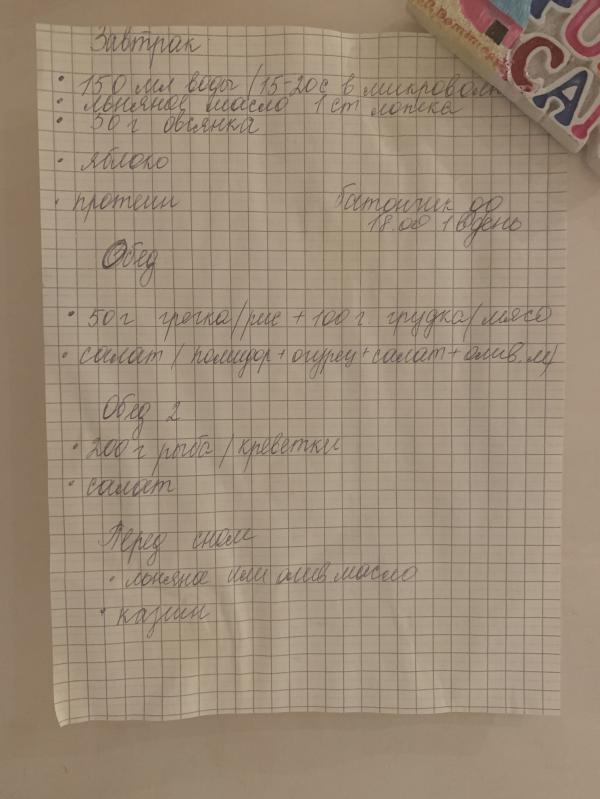 Завтрак
• 150 мл воды (15-20с в микровол
• льняное масло 1 ст ложка
• 50 г овсянка
• яблоко
• протеин
батончик до
18.00 1 в день
Обед
• 50 г гречка/рис + 100 г. грудка/мясо
• салат (помидор+огурец+салат+олив.м)
Обед 2
• 200 г рыба/креветки
• салат
Перед сном
• льняное или олив масло
• казиин
CA